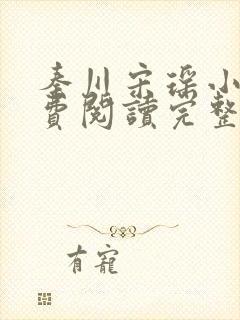 秦川宋瑶小
費閱讀完整
有寵